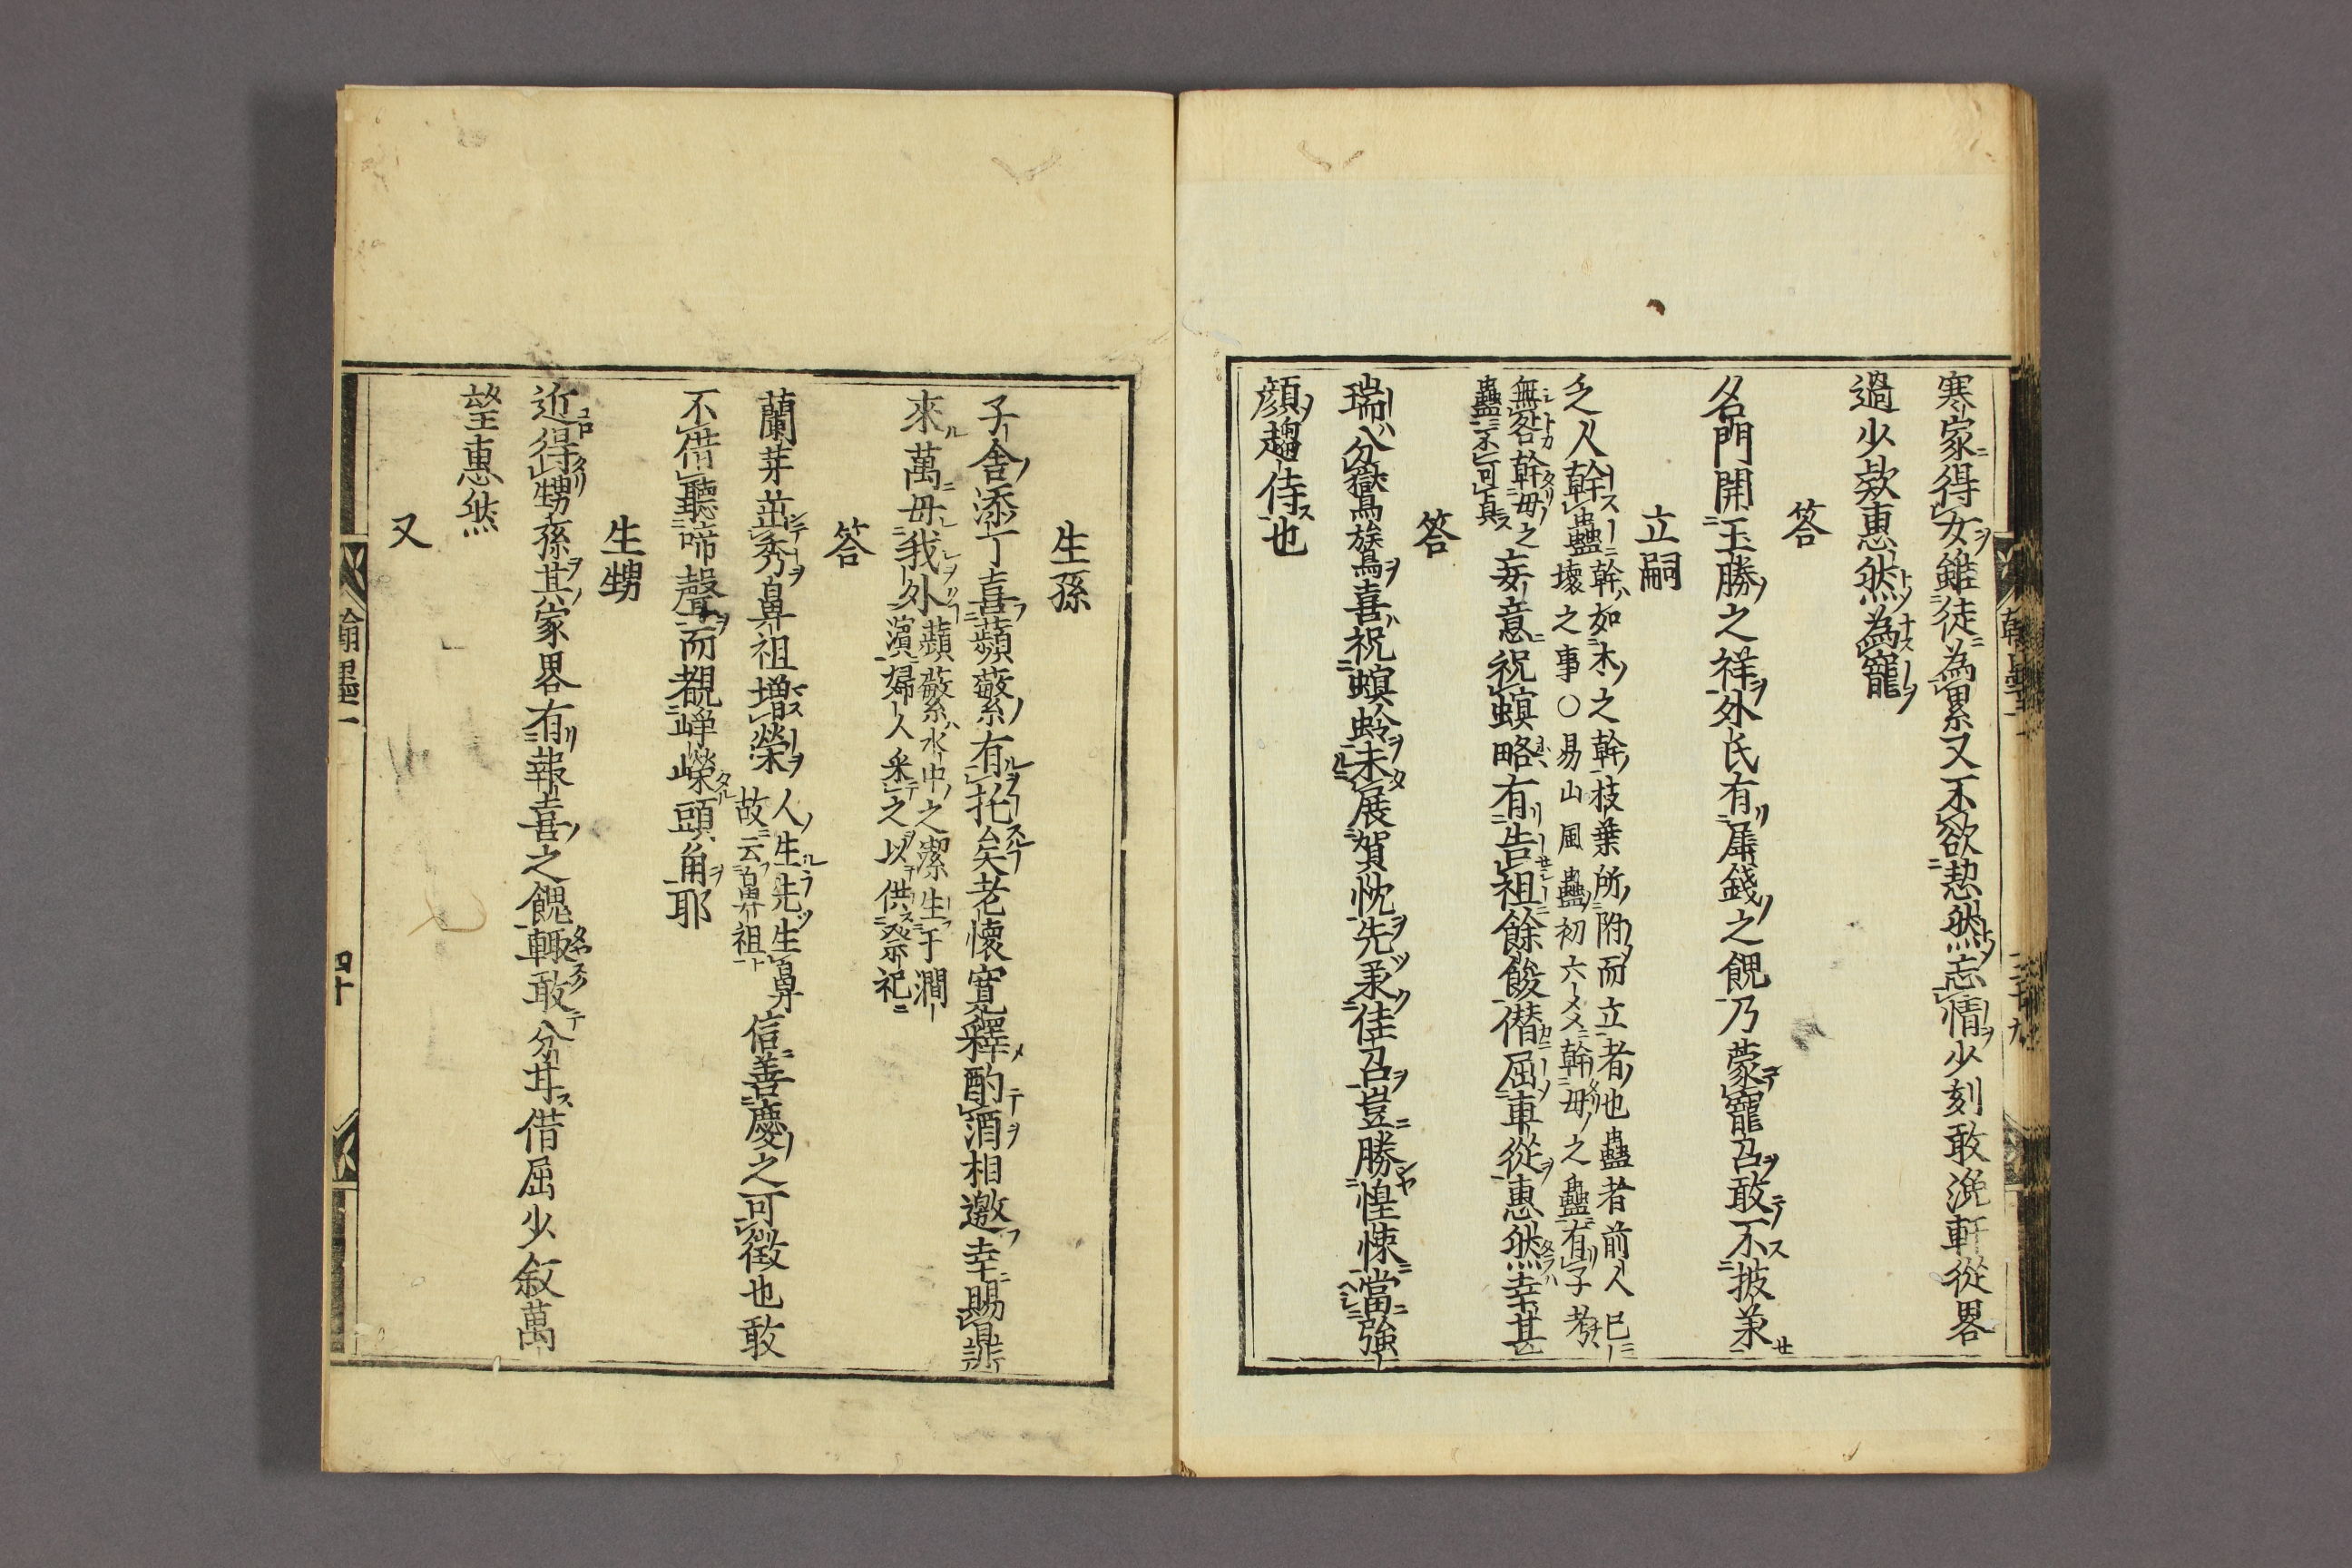 寒家得女雖徒為累又不欲恝然忘情少刻敢浼軒從畧
過少欵惠然為寵
答
名門開玉勝之祥外氏有犀錢之餽乃蒙寵召敢不披兼
立嗣
乏人幹蠱
幹如木之幹枝葉所附而立者也蠱者前人已
壞之事〇易山風蠱初六爻幹母之蠱有子考
無咎幹母之
蠱不可真
妄意祝螟略有告祖餘餕僭屈車從惠然幸甚
答
瑞分嶽鳥族鳥喜祝螟蛉未展賀忱先承佳召豈勝惶悚當強
顔趨侍也
翰墨一
三十九
生孫
子舍添丁喜蘋蘩有托矣老懷寛釋酌酒相邀幸賜鼎諾
來萬毋我外
蘋蘩水中之潔生于澗
濵婦人釆之以供祭祀
答
蘭芽茁秀鼻祖增榮
人生先生鼻
故云鼻祖
信善慶之可徴也敢
不借聽啼聲而覩崢嶸頭角耶
生甥
近得甥孫其家畧有報喜之餽輙敢分甘借屈少敍萬
望惠然
又
翰墨一
四十